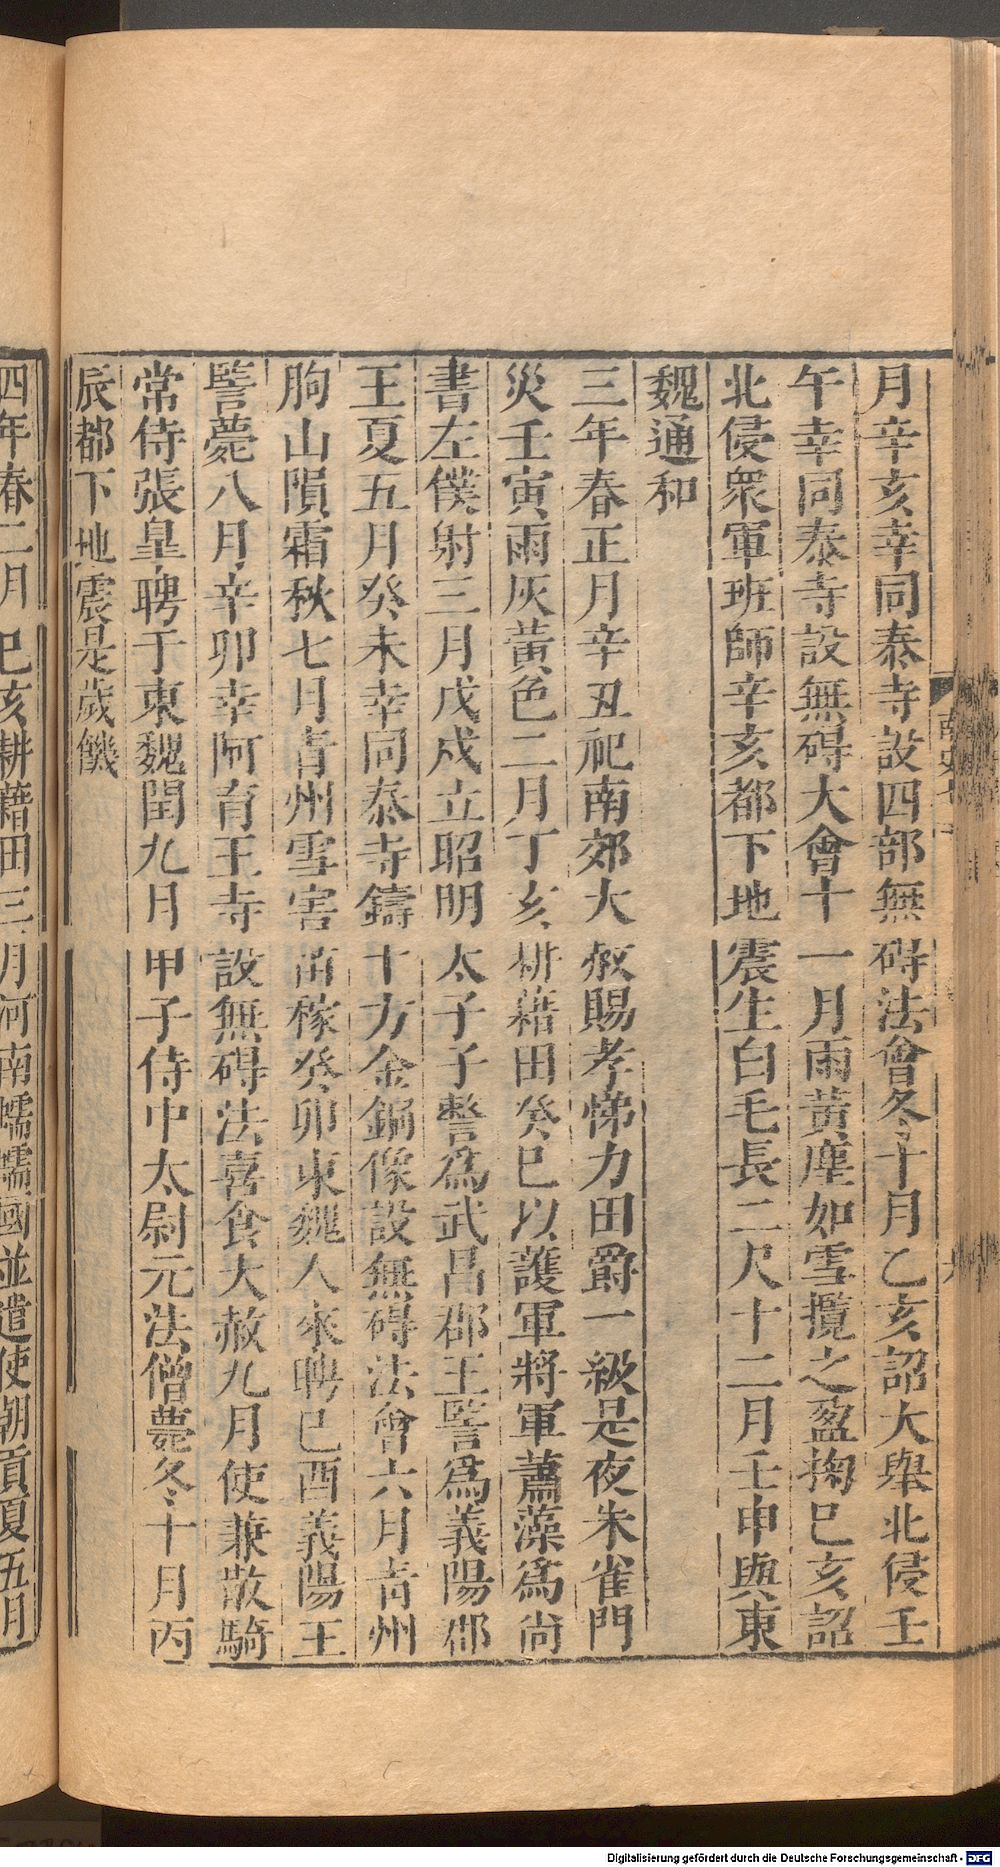 月辛亥幸同泰寺設四部無碍法會冬十月乙亥詔大舉北侵壬
午幸同泰寺設無碍大會十一月雨黃塵如雪攬之盈掬己亥詔
北侵眾軍班師辛亥都下地震生白毛長二尺十二月壬申與東
魏通和
三年春正月辛丑祀南郊大赦賜孝悌力田爵一級是夜朱雀門
災壬寅雨灰黃色二月丁亥耕藉田癸巳以護軍將軍蕭藻為尚
書左僕射三月戊戌立昭明太子子詧為武昌郡王譼為義陽郡
王夏五月癸未幸同泰寺鑄十方金銅像設無碍法會六月青州
朐山隕霜秋七月青州雪害苗稼癸卯東魏人來聘己酉義陽王
譼薨八月辛卯幸阿育王寺設無碍法喜食大赦九月使兼散騎
常侍張皐聘于東魏閏九月甲子侍中太尉元法僧薨冬十月丙
辰都下地震是歲饑
四年春二月己亥耕藉田三月河南蠕蠕國並遣使朝貢夏五月
南史七
Digitalisierung gefördert durch die Deutsche Forschungsgemeinschaft - DFG